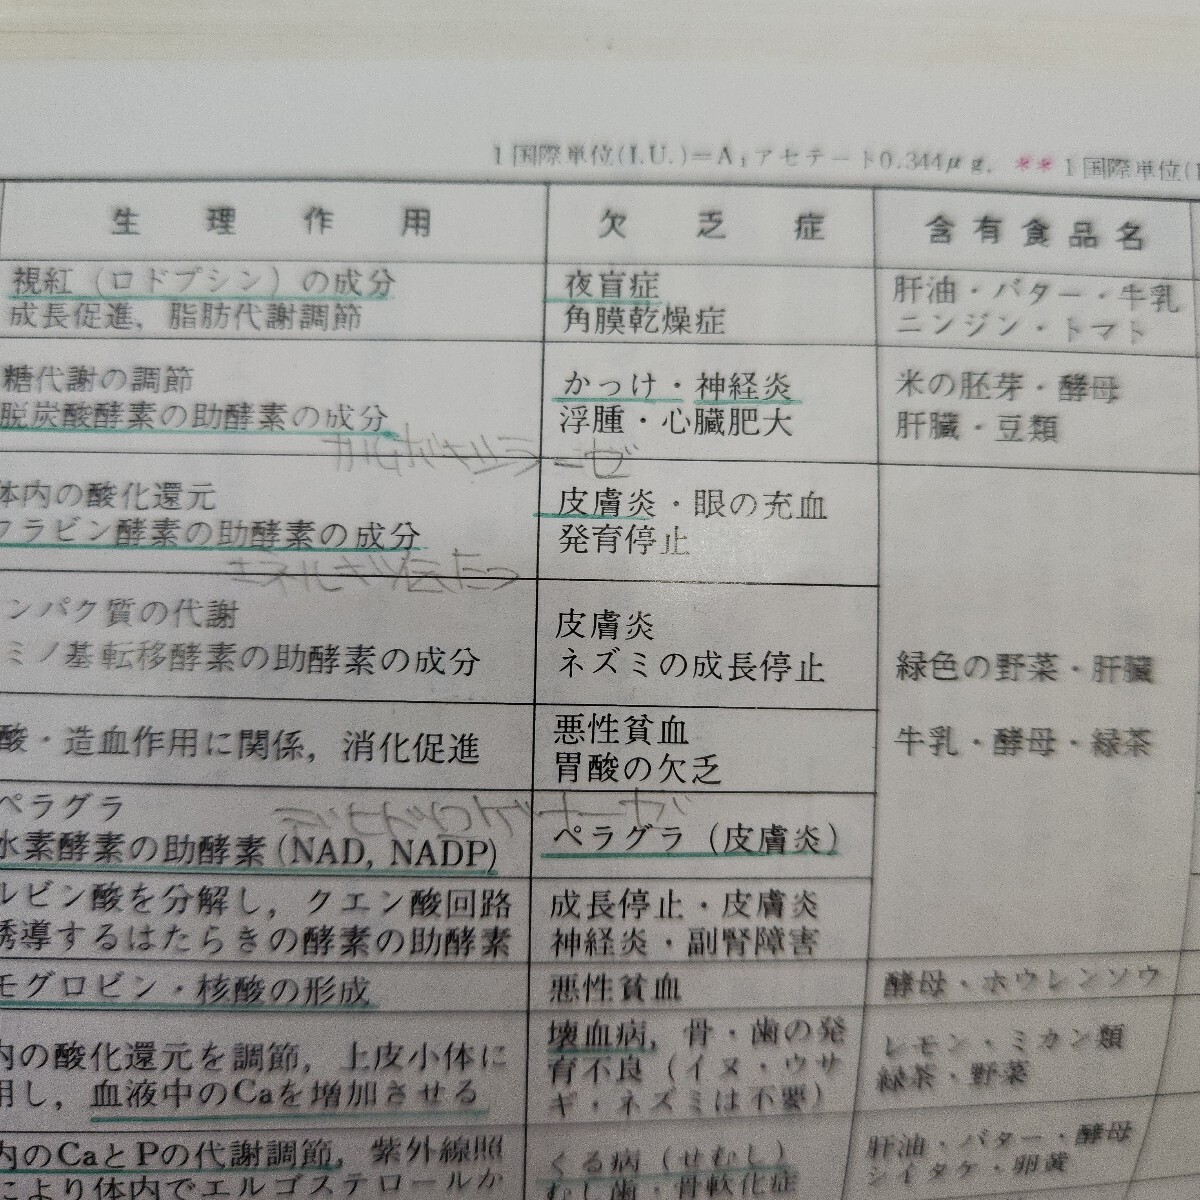 1国際単位(I.U.)=A₁アセテート0.344μg. ** 1国際単位(I
生理作用 欠乏症 含有食品名
視紅（ロドプシン）の成分
成長促進，脂肪代謝調節
夜盲症
角膜乾燥症
肝油・バター・牛乳
ニンジン・トマト
糖代謝の調節
脱炭酸酵素の助酵素の成分
カルボキシラーゼ
かっけ・神経炎
浮腫・心臓肥大
米の胚芽・酵母
肝臓・豆類
体内の酸化還元
フラビン酵素の助酵素の成分
皮膚炎・眼の充血
発育停止
ンパク質の代謝
ミノ基転移酵素の助酵素の成分
皮膚炎
ネズミの成長停止
緑色の野菜・肝臓
牛乳・酵母・緑茶
酸・造血作用に関係，消化促進
悪性貧血
胃酸の欠乏
ペラグラ
水素酵素の助酵素(NAD, NADP)
ペラグラ（皮膚炎）
ルビン酸を分解し，クエン酸回路
誘導するはたらきの酵素の助酵素
成長停止・皮膚炎
神経炎・副腎障害
モグロビン・核酸の形成
悪性貧血
酵母・ホウレンソウ
内の酸化還元を調節，上皮小体に
用し，血液中のCaを増加させる
壊血病，骨・歯の発
育不良（イヌ・ウサ
ギ・ネズミは不要）
レモン・ミカン類
緑茶・野菜
内のCaとPの代謝調節，紫外線照
により体内でエルゴステロールか
くる病（せむし）
むし歯・骨軟化症
肝油・バター・酵母
シイタケ・卵黄